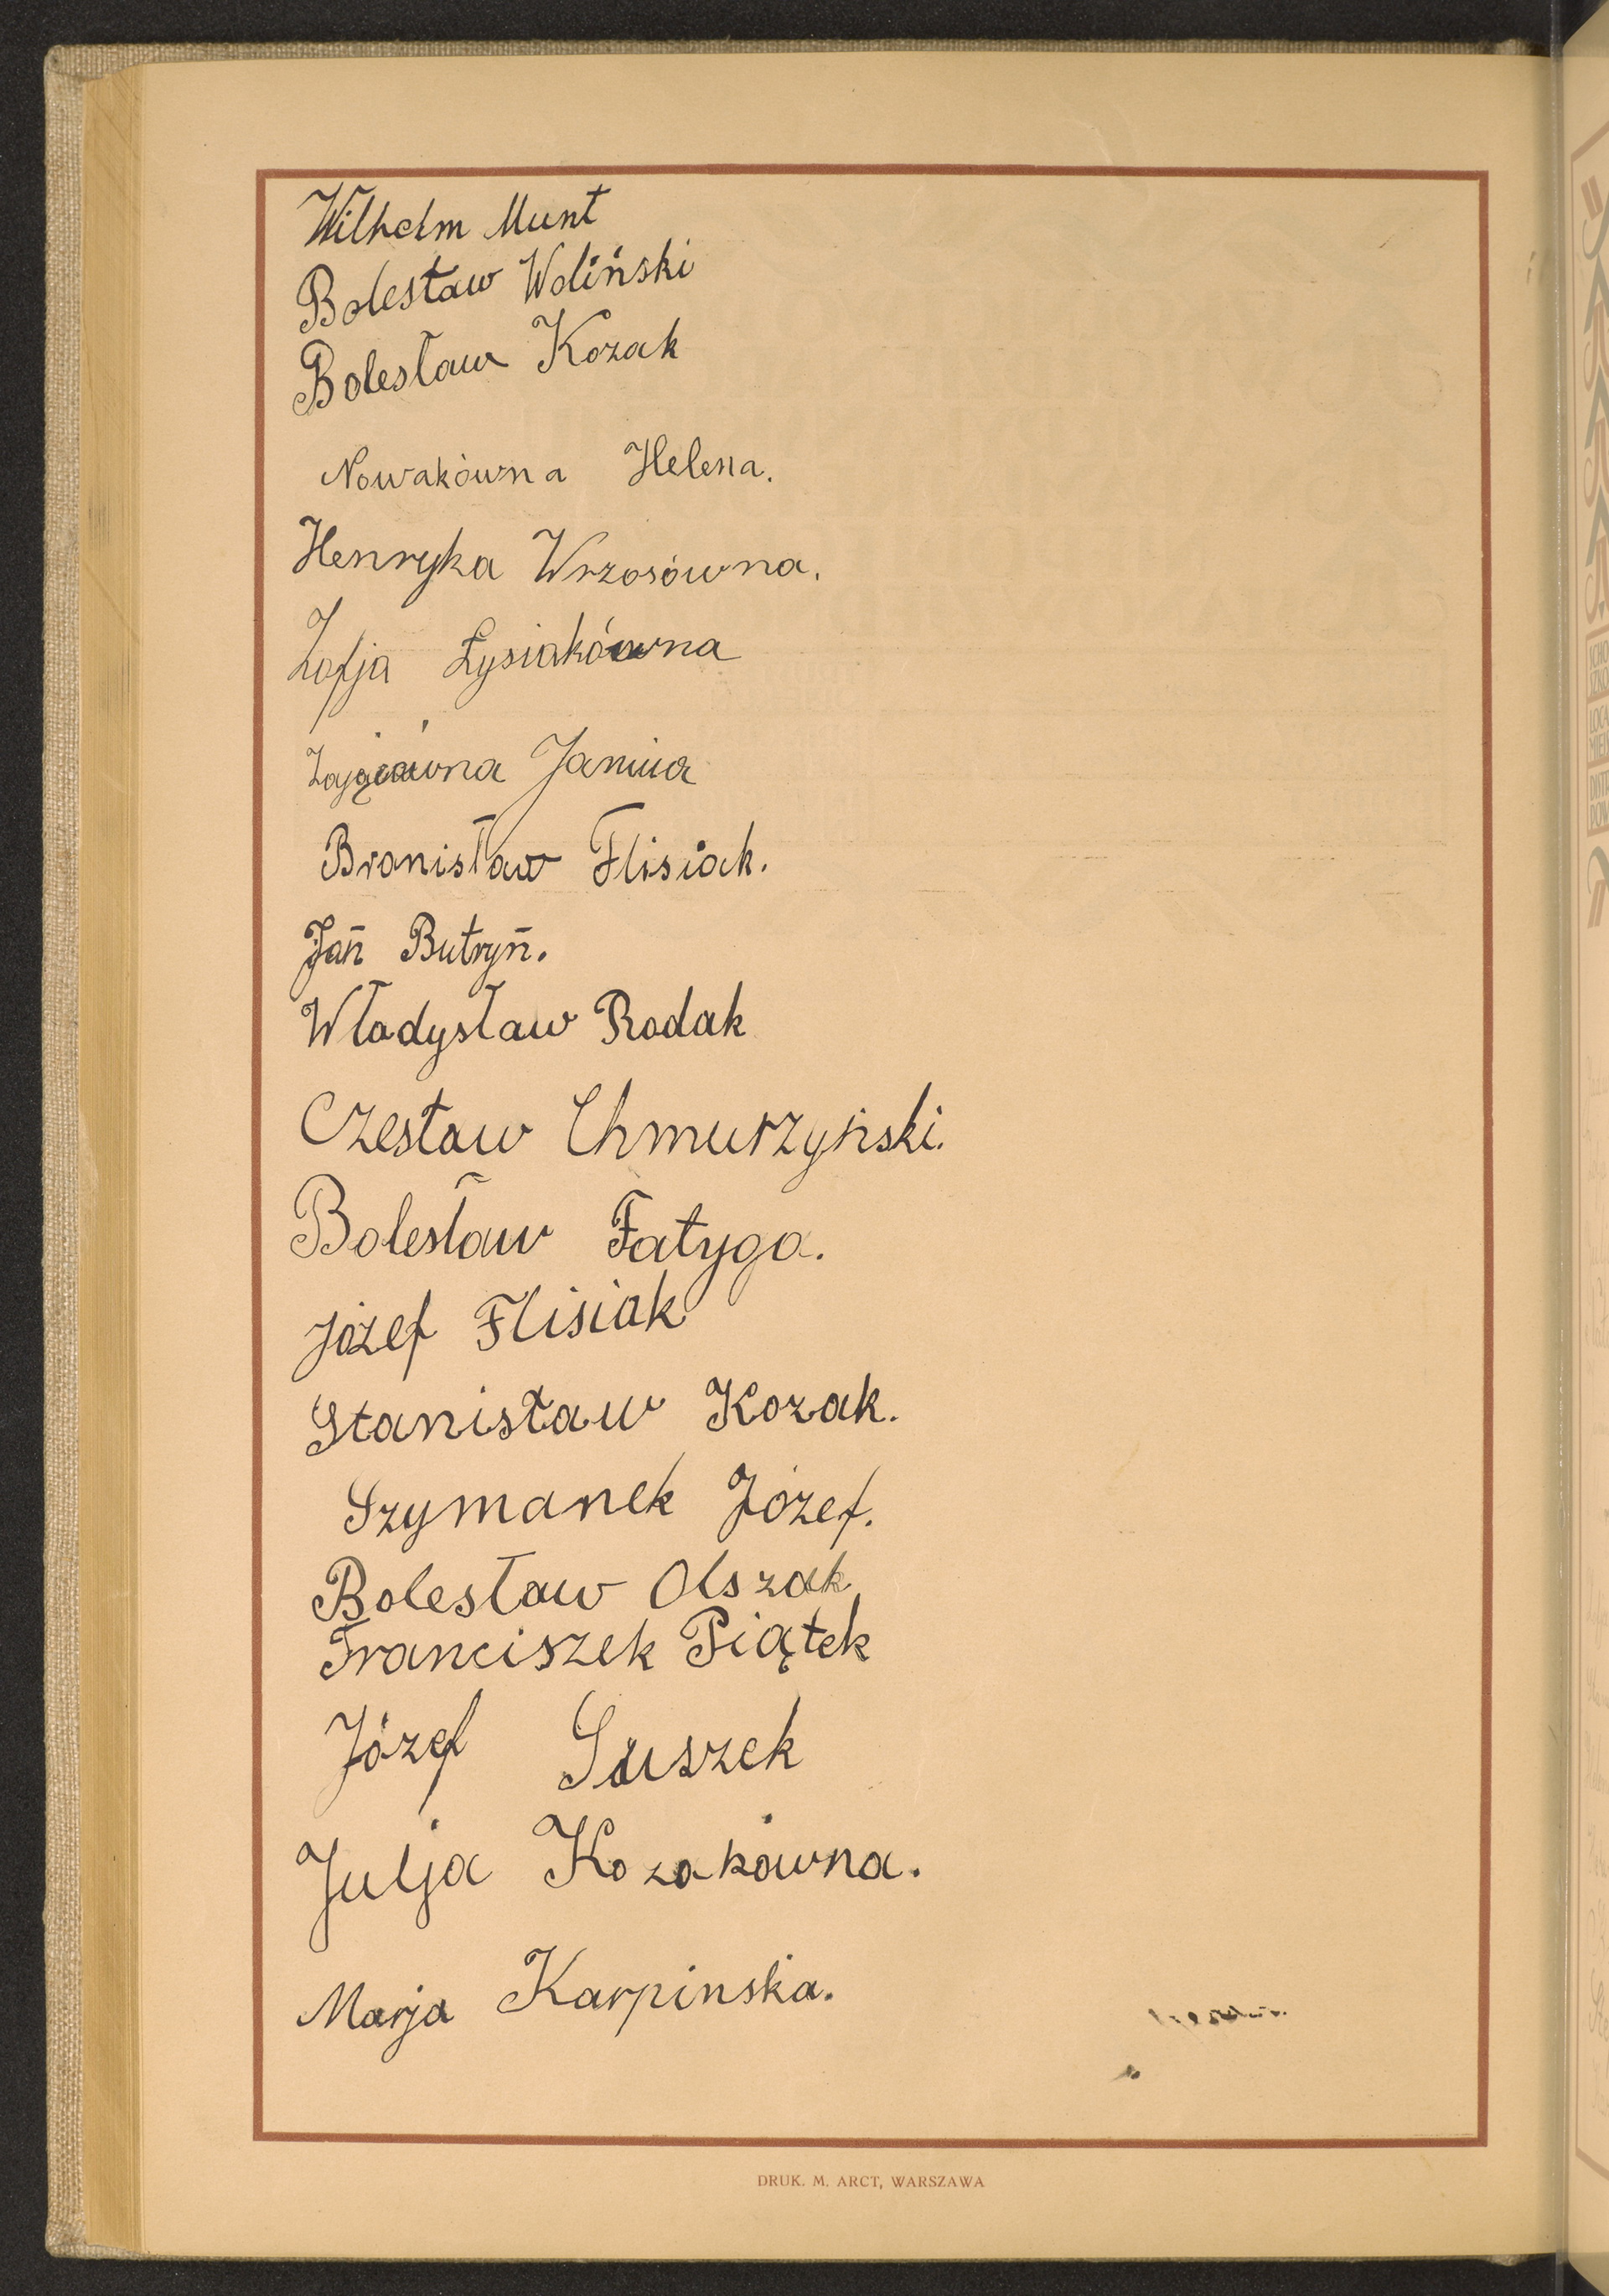 Wilhelm Munt
Bolesław Woliński
Bolesław Kozak
Nowakówna Helena.
Henryka Wrzosówna.
Zofja Łysiakówna
Zającówna Janina
Bronisław Flisiak.
Jan Butryn.
Władysław Rodak
Czesław Chmurzyński.
Bolesław Fatyga.
Józef Flisiak
Stanisław Kozak.
Szymanek Józef.
Bolesław Olszak
Franciszek Piątek
Józef Suszek
Julja Kozakówna.
Marja Karpinska.
DRUK. M. ARCT, WARSZAWA